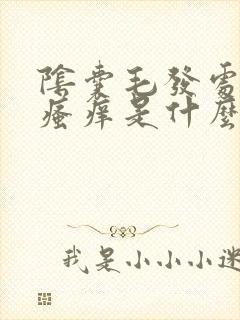 陰囊毛發處
瘙癢是什麼
我是小小小迷